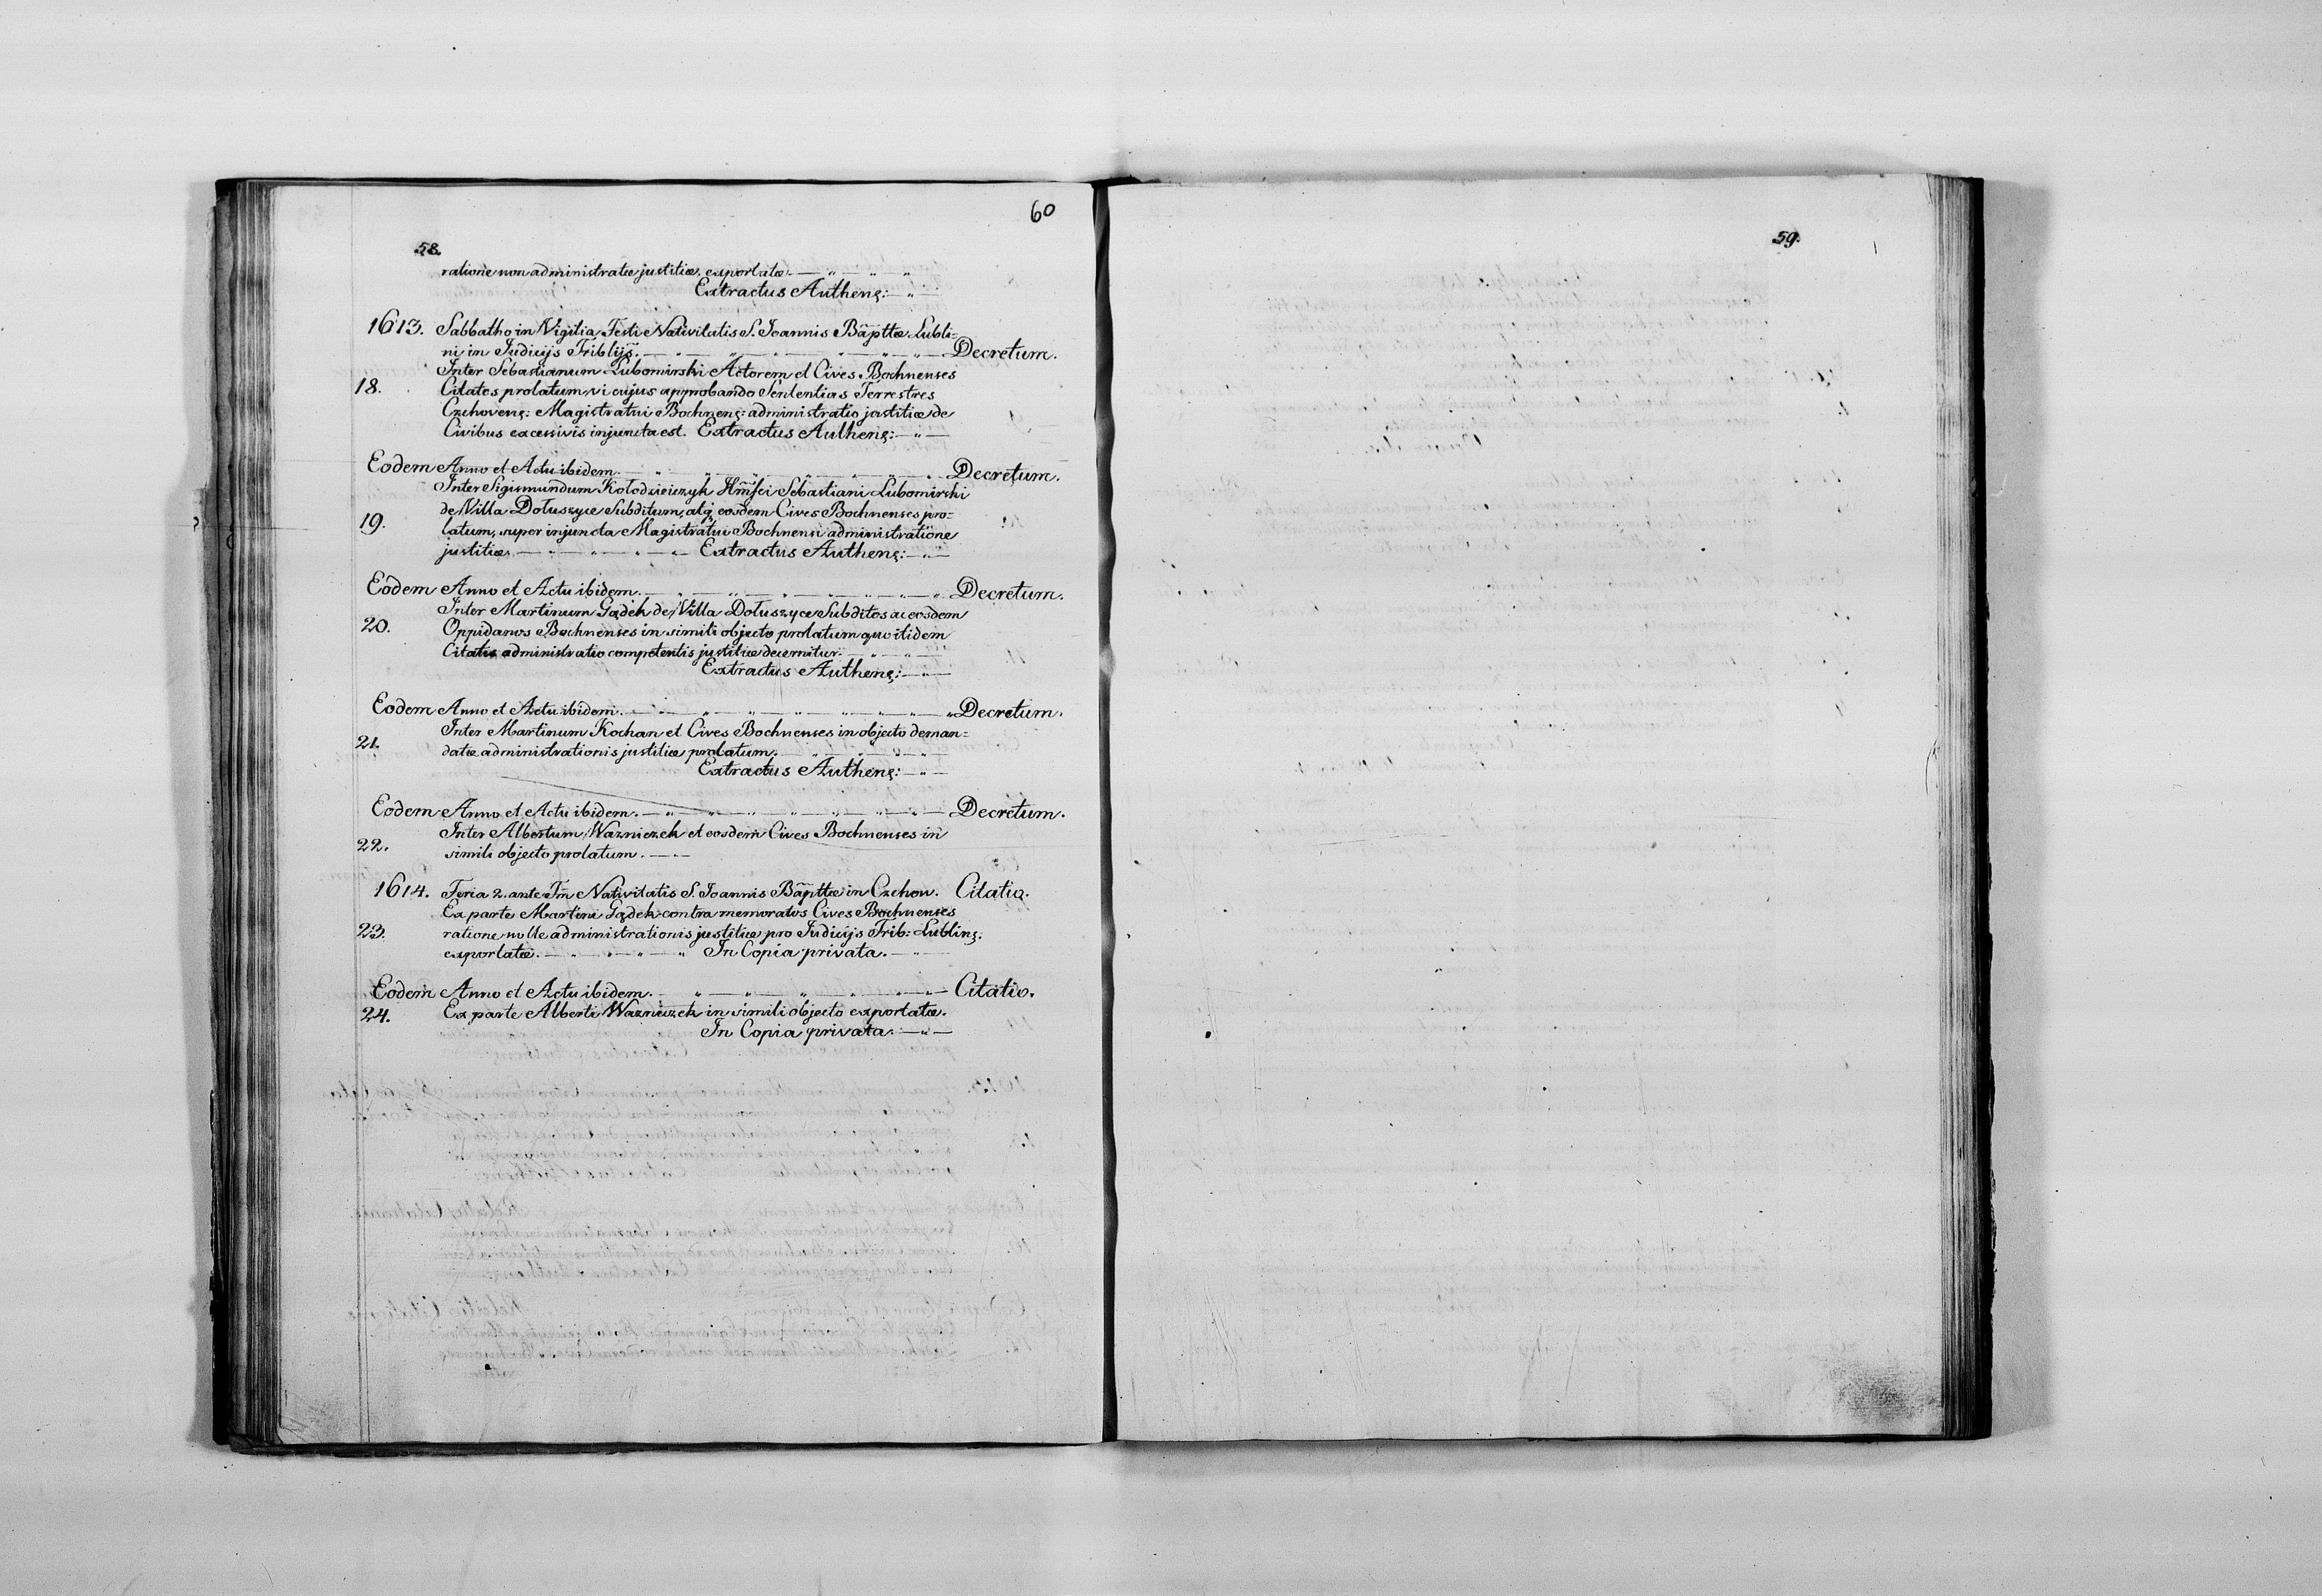 60
58.
ratione non administratæ justitiæ exportatæ. — „ — „ — „
Extractus Authenȩ: — „ —
1613. Sabbatho in Vigilia Festi Nativitatis S. Joannis Bãpttæ Lubli-
ni in Judicijs Triblijs. — „ — „ — „ — „ — „ — Decretum.
Inter Sebastianum Lubomirski Actorem et Cives Bochnenses
18. Citatos prolatum, vi cujus approbando Sententias Terrestres
Czchovenȩ: Magistratui Bochnenȩ: administratio justitiæ de
Civibus excessivis injuncta est. Extractus Authenȩ: — „ —
Eodem Anno et Actu ibidem. — „ — „ — „ — „ — „ — Decretum.
Inter Sigismundum Kołodzieiczyk Sebastiani Lubomirski
de Villa Dołuszyce Subditum, atq̃ eosdem Cives Bochnenses pro-
19. latum, super injuncta Magistratui Bochnensi administratione
justitiæ. — „ — „ — „ — „ Extractus Authenȩ: — „ —
Eodem Anno et Actu ibidem. — „ — „ — „ — „ — „ — Decretum.
Inter Martinum Gądek de Villa Dołuszyce Subditos ac eosdem
20. Oppidanos Bochnenses in simili objecto prolatum quo itidem
Citatis administratio competentis justitiæ decernitur. — „ — „ —
Extractus Authenȩ: — „ —
Eodem Anno et Actu ibidem. — „ — „ — „ — „ — „ — Decretum.
Inter Martinum Kochan et Cives Bochnenses in objecto deman-
21. datæ administrationis justitiæ prolatum. — „ — „ — „ —
Extractus Authenȩ: — „ —
Eodem Anno et Actu ibidem. — „ — „ — „ — „ — „ — Decretum.
Inter Albertum Wazniczek et eosdem Cives Bochnenses in
22. simili objecto prolatum. — „ —
1614. Feria 2. ante Fm̃ Nativitatis S. Joannis Bãpttæ in Czchow. Citatio.
Ex parte Martini Gądek contra memoratos Cives Bochnenses
23. ratione nullæ administrationis justitiæ pro Judicijs Trib: Lublinȩ.
exportatæ. — „ — „ — „ — „ In Copia privata. — „ —
Eodem Anno et Actu ibidem. — „ — „ — „ — „ — „ — Citatio.
24. Ex parte Alberti Wazniczek in simili objecto exportatæ.
In Copia privata. — „ —
59.